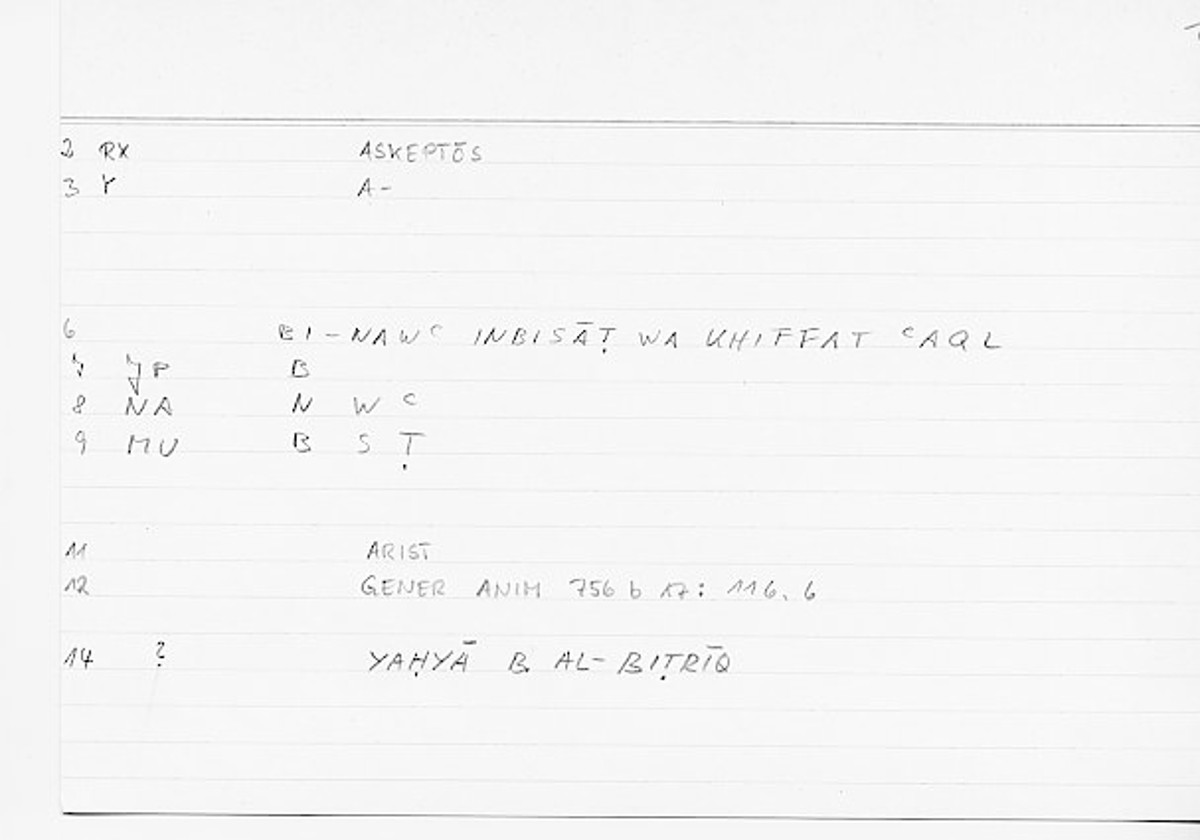 2 RX ASKEPTŌS
3 Y A-
6 BI-NAWʿ INBISĀṬ WA KHIFFAT ʿAQL
7 JP B
8 NA N W ʿ
9 MU B S Ṭ
11 ARIST
12 GENER ANIM 756 b 17: 116. 6
14 ? YAḤYĀ B. AL-BIṬRĪQ